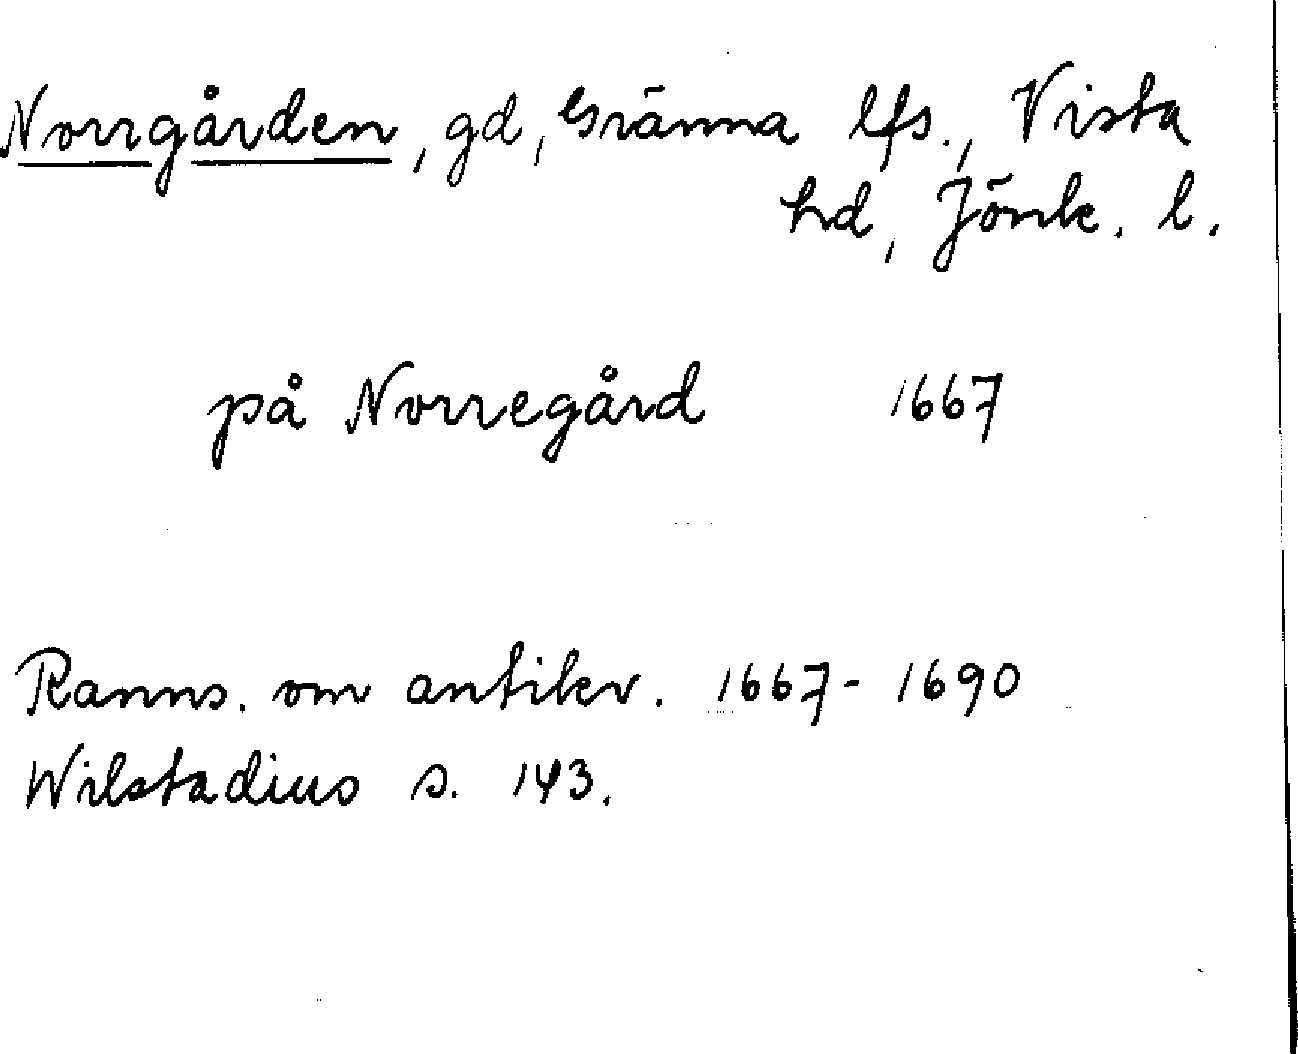 Norrgården, gd, Gränna lfs., Vista
hd, Jönk. l.
på Norregård 1667
Ranns. om antikv. 1667-1690
Wilstadius s. 143.